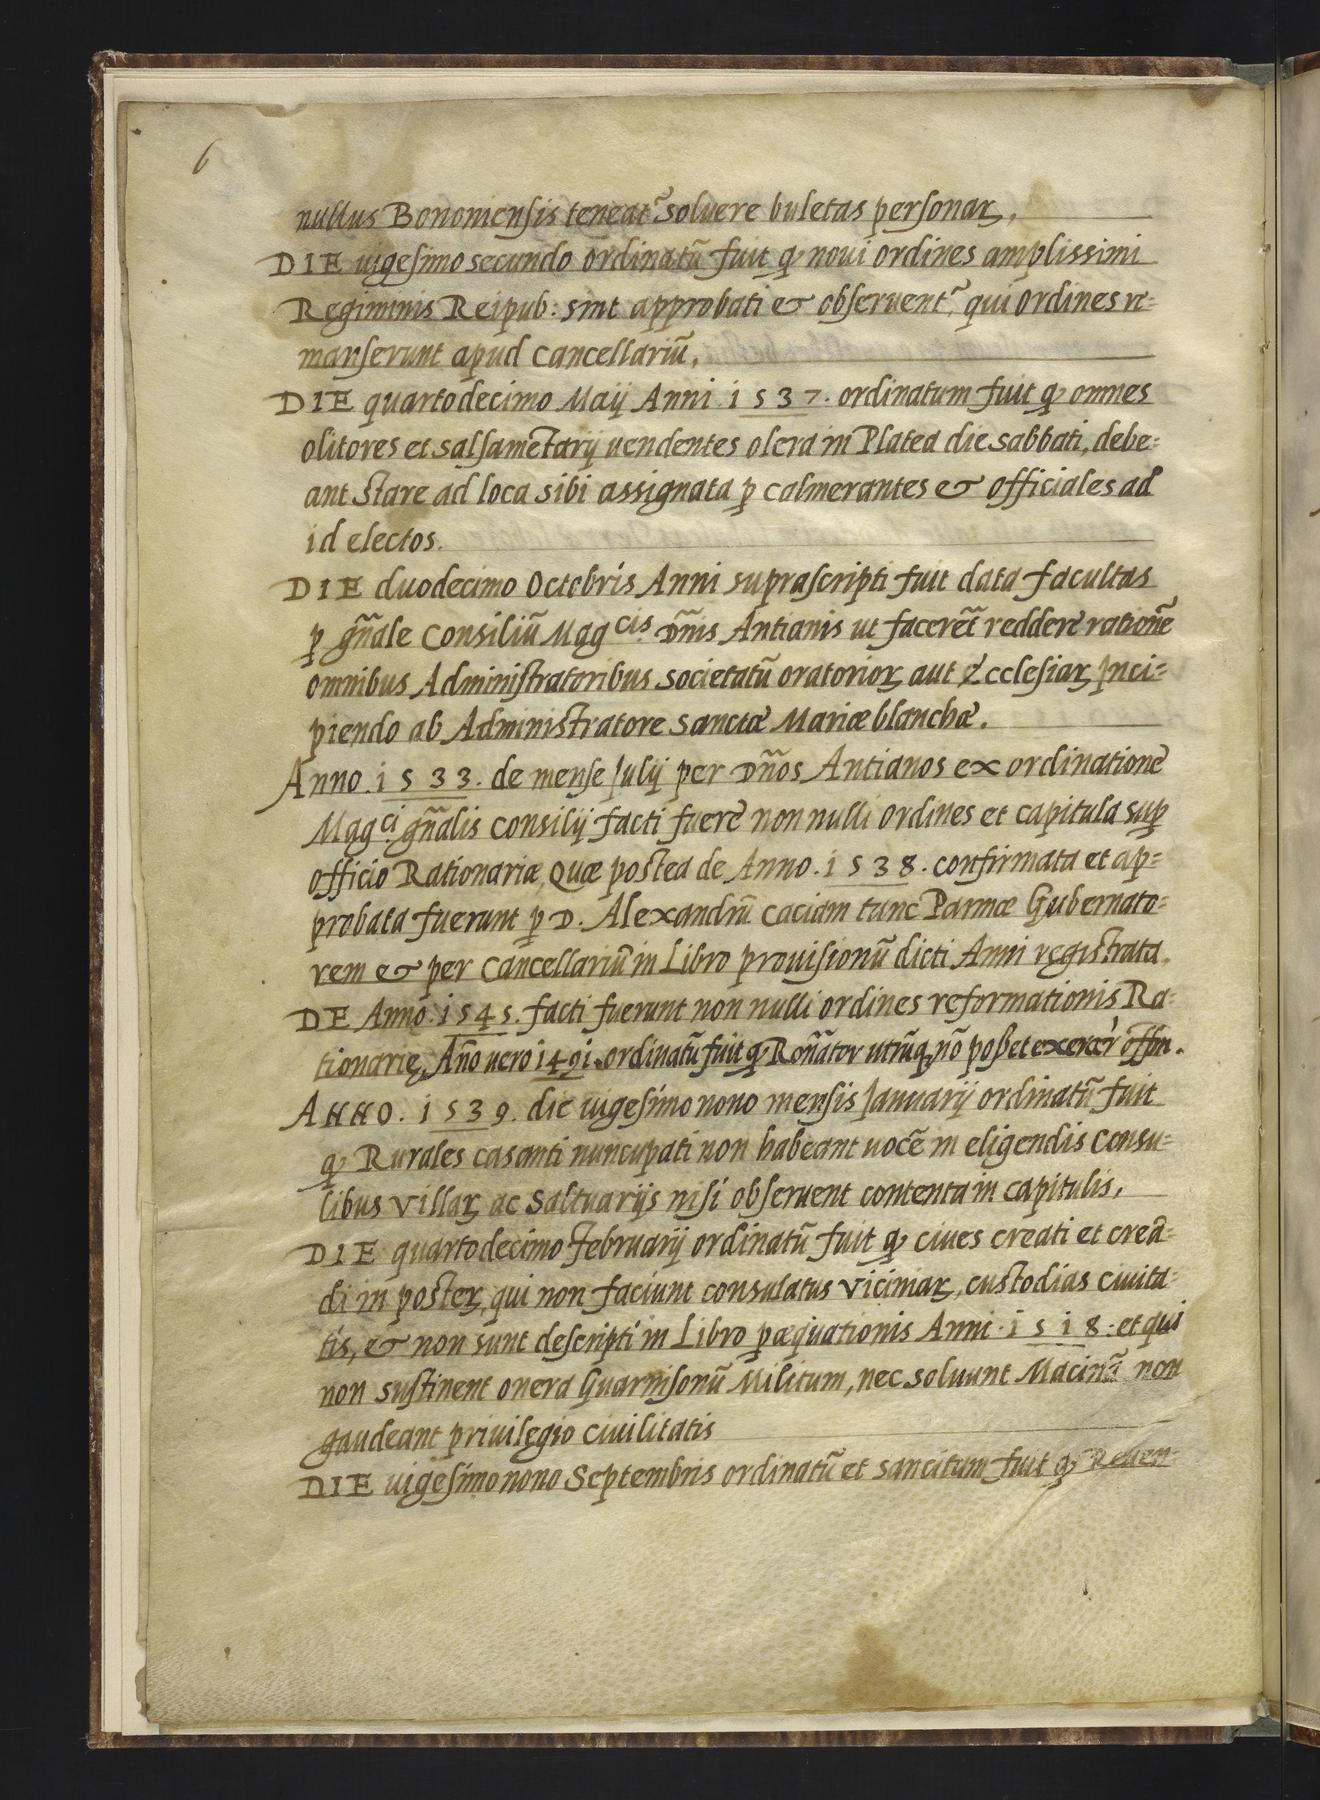 6
nullus Bononiensis teneat᷑ solvere buletas personaꝝ,
DIE uigesimo secundo ordinatũ fuit ꝙ noui ordines amplissimi
Regiminis Reipub: sint approbati & obseruent᷑, qui ordines re=
manserunt apud Cancellariũ.
DIE quartodecimo Maij Anni 1537. ordinatum fuit ꝙ omnes
olitores et salsamẽtarij uendentes olera in Platea die sabbati, debe=
ant stare ad loca sibi assignata ꝑ calmerantes & officiales ad
id electos.
DIE duodecimo Octobris Anni suprascripti fuit data facultas
ꝑ gñale Consiliũ Magcis Dñis Antianis ut facerẽt reddere rationẽ
omnibus Administratoribus societatũ oratorioꝝ aut Ecclesiaꝝ Inci=
piendo ab Administratore Sanctæ Mariæ blanchæ.
Anno. 1533. de mense Julij per Dños Antianos ex ordinatione
Magci gñalis Consilij facti fuere non nulli ordines et capitula suꝑ
officio Rationariæ, Quæ postea de Anno. 1538. confirmata et ap=
probata fuerunt ꝑ D. Alexandrũ Caciam tunc Parmæ Gubernato=
rem & per Cancellariũ in Libro prouisionũ dicti Anni registrata.
DE Anno. 1545. facti fuerunt non nulli ordines reformationis Ra=
tionarię, Año uero 1491. ordinatũ fuit ꝙ Roñator utrũq, nõ posset exercer' offm.
ANNO. 1539. die uigesimo nono mensis Januarij ordinatũ fuit
ꝙ Rurales casanti nuncupati non habeant uocẽ in eligendis Consu=
libus Villaꝝ ac Saltuarijs nisi obseruent contenta in capitulis,
DIE quartodecimo Februarij ordinatũ fuit ꝙ ciues creati et creã=
di in posteꝝ, qui non faciunt consulatus Viciniaꝝ, custodias ciuita=
tis, & non sunt descripti in Libro pæquationis Anni. 1518. et qui
non sustinent onera Guarnisonũ Militum, nec soluunt Macinã non
gaudeant priuilegio ciuilitatis
DIE uigesimo nono Septembris ordinatũ et sancitum fuit ꝙ Reuen=